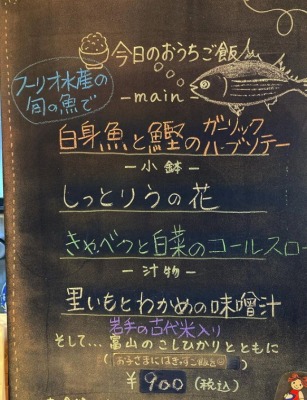 今日のおうちご飯
フーリオ水産の
旬の魚で
-main-
白身魚と鰹のガーリック
ハーブソテー
-小鉢-
しっとりうの花
きゃべつと白菜のコールスロー
-汁物-
里いもとわかめの味噌汁
岩手の古代米入り
そして…富山のこしひかりとともに
¥900(税込)